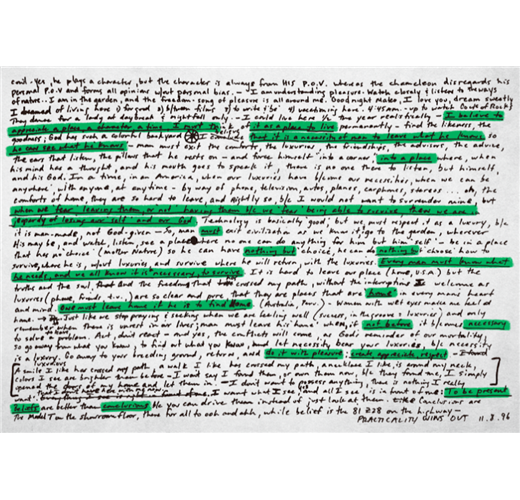 civil - yes, he plays a character, but the character is always from HIS P.O.V. whereas the chameleon disregards his
personal P.O.V and forms all opinions w/out personal bias. - I am understanding pleasure: Watch closely & listen to the ways
of nature.. I am in the garden, and the freedom-song of pleasure is all around me. Good night Make, I love you, dream sweetly
I dreamed of living here
They dance for a lady at daybreak & nightfall only - I could live here 1/2 the year realistically - I believe to
appreciate a place, character a time, I must think of it as a place to live permanently - find likeness, the
goodness, God has such a powerful backhand that it is a necessity of man to leave what he knows so
he can see what he knows - man must defy the comforts, the luxuries, the friendships, the advisors, the advice,
the ears that listen, the pillows that he rests on - and force himself into a corner, into a place where, when
his mind has a thought, and his mouth goes to speak it, there is no one there to listen, but himself,
and his God. In a time, in an America, when our luxuries have b/come our necessities, when we can be
anywhere, with anyone, at anytime - by way of phone, television, autos, planes, carphones, stereos... oh, the
comforts of home, they are so hard to leave, and rightly so, b/c I would not want to surrender mine, but
when we fear leaving them, or not having them b/c we fear being able to survive, then we are in
jeopardy of losing our self - and our God. Technology is basically good, but we must respect it as a luxury, b/c
it is not God given - So, man must exit civilization as he know it, go to the garden, wherever
His may be, and watch, listen, see a place where no one can do anything for him but himself - be in a place
that has no choice (Mother Nature) so he can have nothing but choice, he can do nothing but choose how to
survive, where he is, w/out luxuries, and survive where he will return, with the luxuries. Every man must know what
he needs, and we all know it is necessary, to survive. It is hard to leave our place (home, U.S.A) but the
truths and the soul, that God the freedom that has crossed my path, without the interruptions I welcome as
luxuries (phone, friends etc.) are so clear and pure that they are places that are home in every man's heart
and mind. One must leave home if he is to find home.
home. - Just like we stop praying & seeking when we are healing well (success, in the groove & luxuries) and only
remember when them is unrest in our lives; man must leave his home when, if not before it b/comes necessary
to solve a problem. And, don't read - and yes, the conflicts will come, as God's reminder of our mortality,
so go away from what you know, to find out what you know, and let necessity bear your luxuries, b/c necessity
is a luxury. Go away to your breeding ground, retreat, and do it with pleasure; create, appreciate, respect
A smile I like has crossed my path, a walk I like has crossed my path, a necklace I like, is around my neck,
colors I see are brighter than before - and I find them, I own them now, b/c they found me, I simply
opened the door of my home and let them in - I don't want to possess anything, there is nothing I really
want I want what I see, and all I see, is in front of me: To be present
places are better than conclusions b/c you can drive them instead of just look at them. Conclusions are
the Model T on the showroom floor, there for all to ooh and ahh, while belief is the 81 Z28 on the highway -
PRACTICALITY WINS OUT 11.8.96